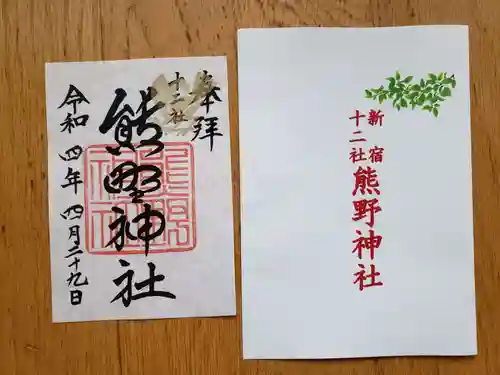 奉拝
十二社
熊野神社
令和四年四月二十九日
熊野神社
新宿
十二社
熊野神社